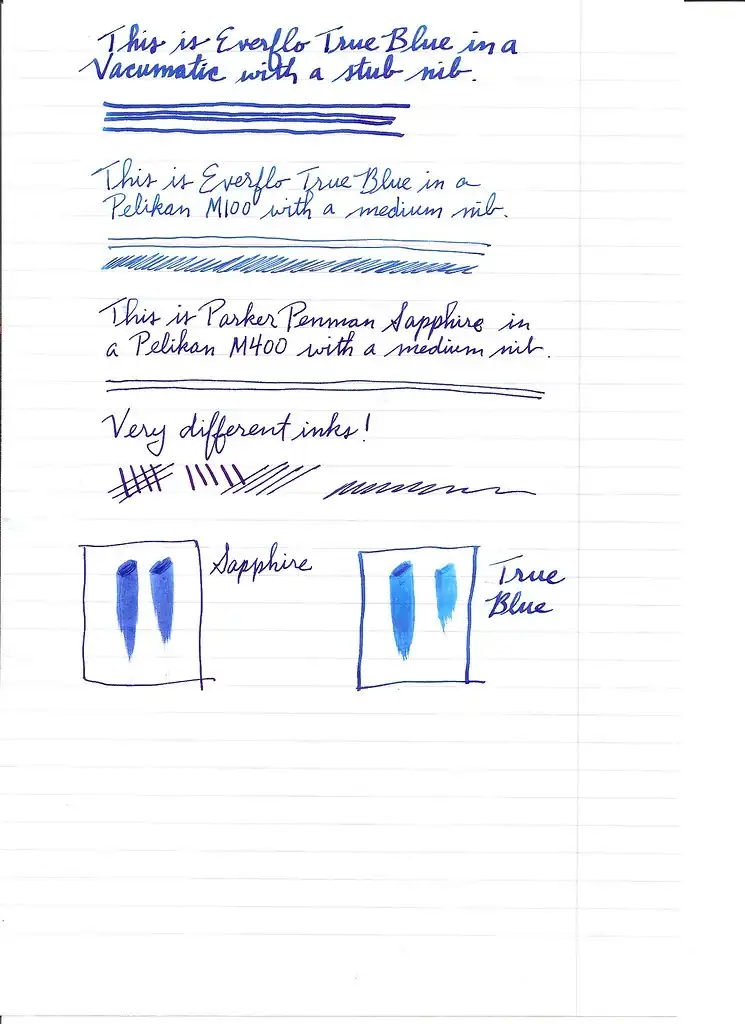 This is Everflo True Blue in a
Vacumatic with a stub nib.
This is Everflo True Blue in a
Pelikan M100 with a medium nib.
This is Parker Penman Sapphire in
a Pelikan M400 with a medium nib.
Very different inks!
Sapphire
True
Blue